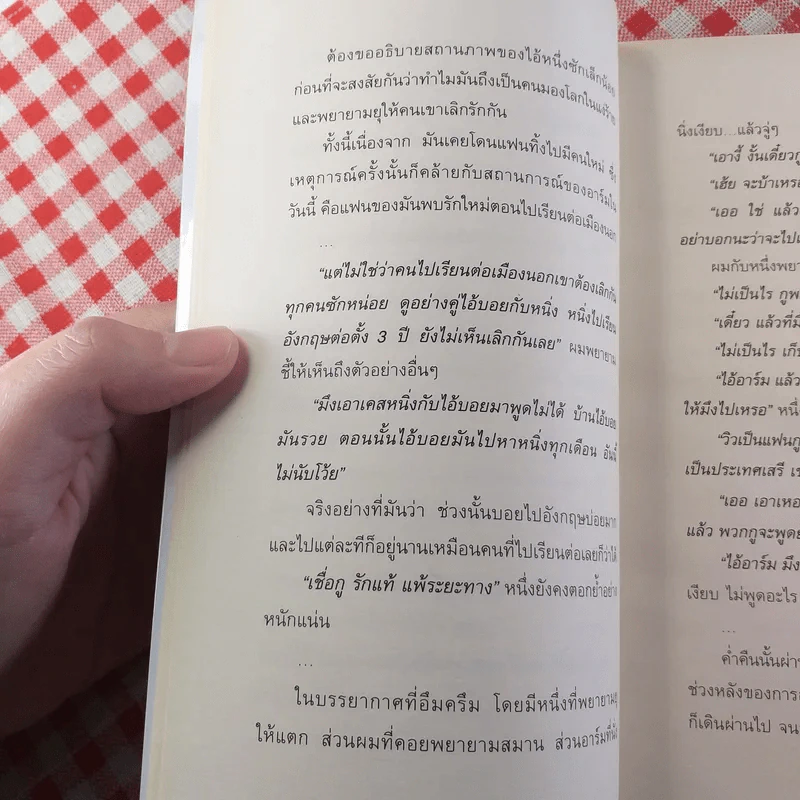 ต้องขออธิบายสถานภาพของไอ้หนึ่งซักเล็กน้อย
ก่อนที่จะสงสัยกันว่าทำไมมันถึงเป็นคนมองโลกในแง่ร้าย
และพยายามยุให้คนเขาเลิกรักกัน
ทั้งนี้เนื่องจาก มันเคยโดนแฟนทิ้งไปมีคนใหม่ ซึ่ง
เหตุการณ์ครั้งนั้นก็คล้ายกับสถานการณ์ของอาร์มใน
วันนี้ คือแฟนของมันพบรักใหม่ตอนไปเรียนต่อเมืองนอก
...
“แต่ไม่ใช่ว่าคนไปเรียนต่อเมืองนอกเขาต้องเลิกกัน
ทุกคนซักหน่อย ดูอย่างคู่ไอ้บอยกับหนิ่ง หนิ่งไปเรียน
อังกฤษต่อตั้ง 3 ปี ยังไม่เห็นเลิกกันเลย” ผมพยายาม
ชี้ให้เห็นถึงตัวอย่างอื่นๆ
“มึงเอาเคสหนิ่งกับไอ้บอยมาพูดไม่ได้ บ้านไอ้บอย
มันรวย ตอนนั้นไอ้บอยมันไปหาหนิ่งทุกเดือน อันนี้
ไม่นับโว้ย”
จริงอย่างที่มันว่า ช่วงนั้นบอยไปอังกฤษบ่อยมาก
และไปแต่ละทีก็อยู่นานเหมือนคนที่ไปเรียนต่อเลยก็ว่าได้
“เชื่อกู รักแท้ แพ้ระยะทาง” หนึ่งยังคงตอกย้ำอย่าง
หนักแน่น
...
ในบรรยากาศที่อึมครึม โดยมีหนึ่งที่พยายามยุ
ให้แตก ส่วนผมที่คอยพยายามสมาน ส่วนอาร์มที่นั่ง
นิ่งเงียบ...แล้วจู่ๆ
“เอางี้ งั้นเดี๋ยวกู
“เฮ้ย จะบ้าเหรอ
“เออ ใช่ แล้ว
อย่าบอกนะว่าจะไป
ผมกับหนึ่งพยา
“ไม่เป็นไร กูพ
“เดี๋ยว แล้วที่มี
“ไม่เป็นไร เก็บ
“ไอ้อาร์ม แล้ว
ให้มึงไปเหรอ” หนึ่
“วิวเป็นแฟนกู
เป็นประเทศเสรี เร
“เออ เอาเหอ
แล้ว พวกกูจะพูด
“ไอ้อาร์ม มึง
เงียบ ไม่พูดอะไร
...
ค่ำคืนนั้นผ่า
ช่วงหลังของการ
ก็เดินผ่านไป จน